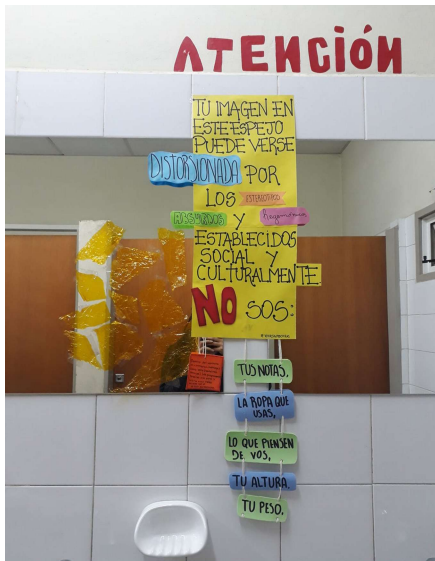 ATENCIÓN
TU IMAGEN EN
ESTE ESPEJO
PUEDE VERSE
DISTORSIONADA POR
LOS ESTEREOTIPOS
ABSURDOS Y hegemónicos
ESTABLECIDOS
SOCIAL Y
CULTURALMENTE.
NO SOS:
TUS NOTAS,
LA ROPA QUE
USAS,
LO QUE PIENSEN
DE VOS,
TU ALTURA.
TU PESO.